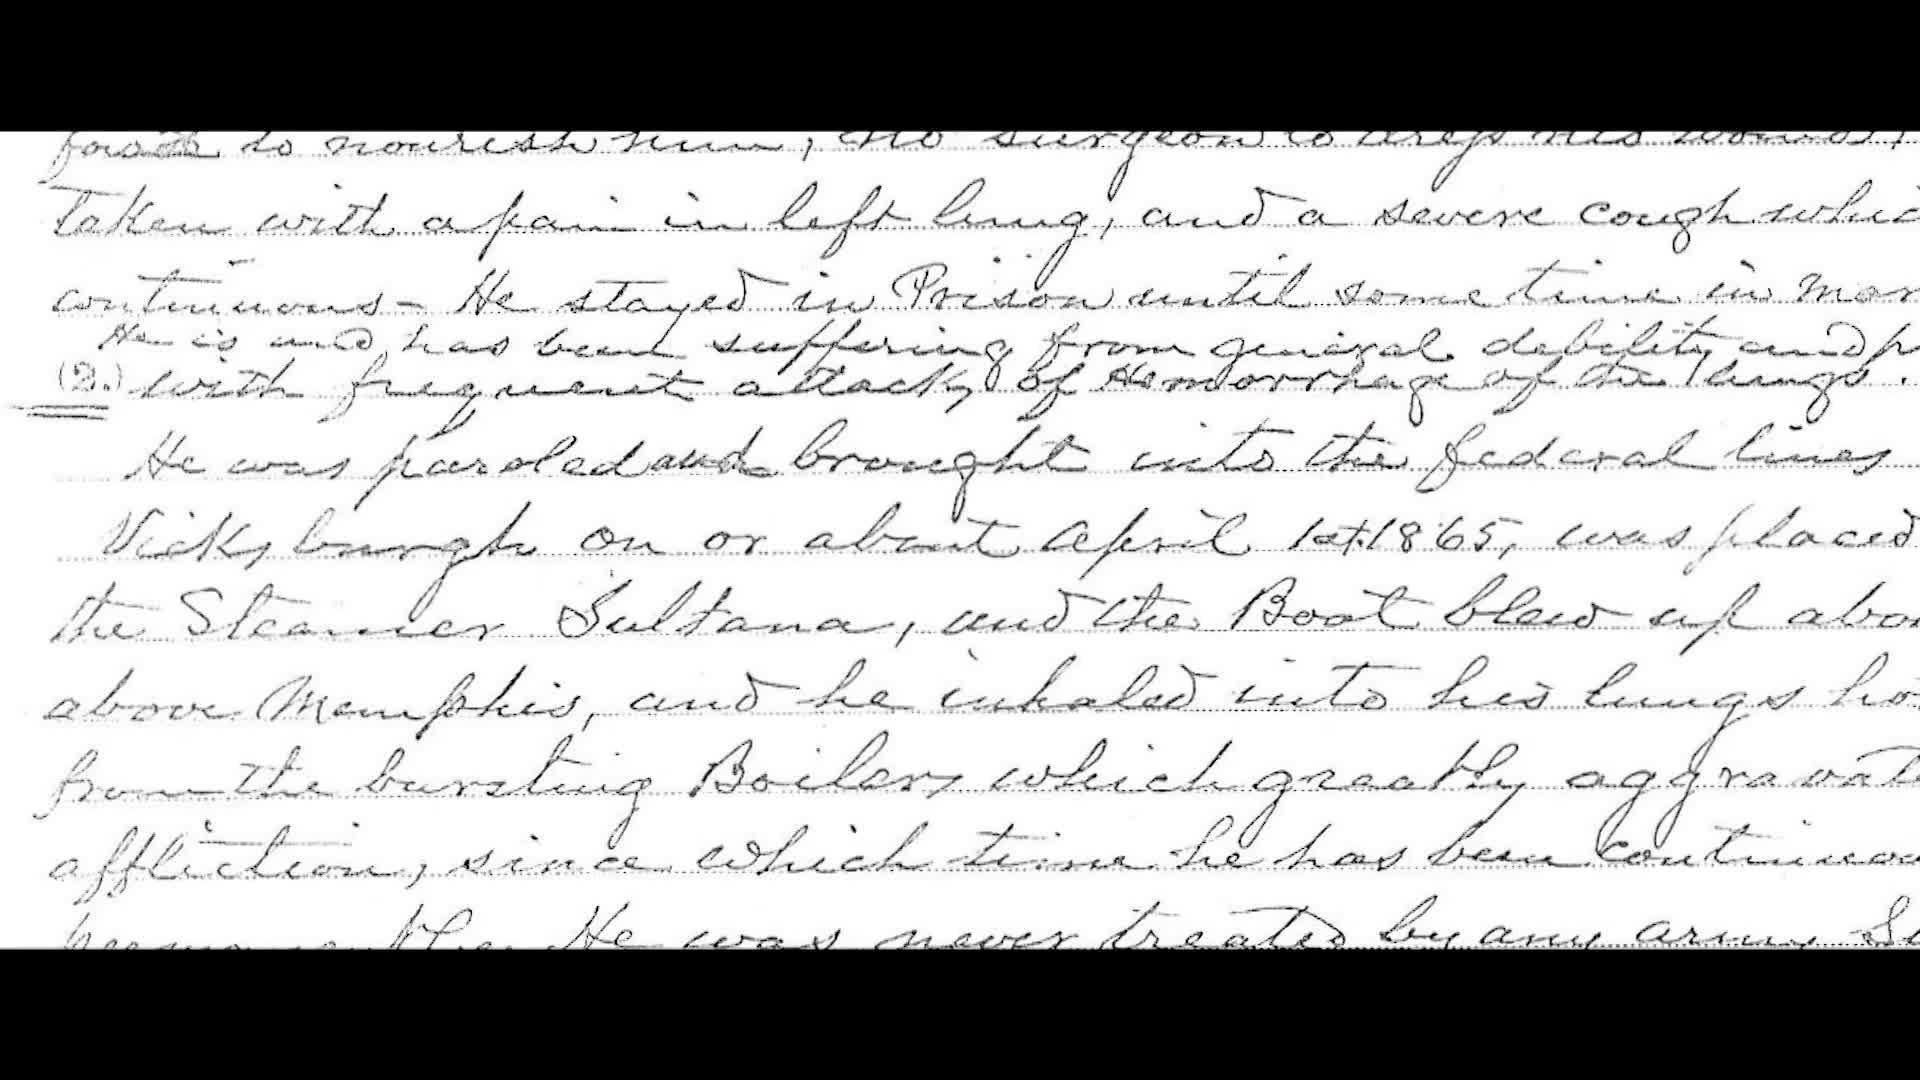 food to nourish him, no surgeon to dress his wound,
Taken with a pain in left lung, and a severe cough whic
continuous - He stayed in Prison until some time in Mar
He is and has been suffering from general debility and p
(2.) with frequent attacks of Hemorrhage of the lungs.
He was paroled and brought into the federal lines
Vicksburgh on or about April 1st 1865, was placed
the Steamer Sultana, and the Boat blew up abou
above Memphis, and he inhaled into his lungs ho
from the bursting Boilers which greatly aggravate
affliction, since which time he has been continuou
He was never treated by any army Su